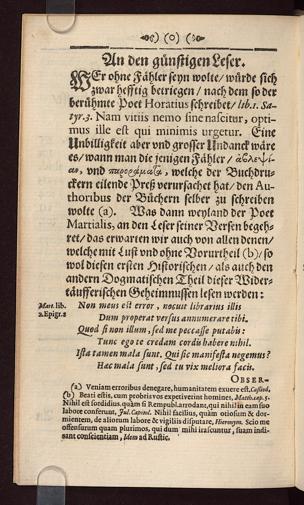 (o)
An den günstigen Leser.
WEr ohne Fähler seyn wolte/ würde sich
zwar hefftig betriegen/ nach dem so der
berühmte Poet Horatius schreibet/ lib. 1. Sa-
tyr. 3. Nam vitiis nemo sine nascitur, opti-
mus ille est qui minimis urgetur. Eine
Unbilligkeit aber und grosser Undanck wäre
es/ wann man die jenigen Fähler/
und welche der Buchdru-
ckern eilende Preß verursachet hat/ den Au-
thoribus der Büchern selber zu schreiben
wolte (a). Was dann weyland der Poet
Martialis, an den Leser seiner Versen begeh-
ret/ das erwarten wir auch von allen denen/
welche mit Lust und ohne Vorurtheil (b)/ so
wol diesen ersten Historischen/ als auch den
andern Dogmatischen Theil dieser Wider-
täufferischen Geheimnussen lesen werden:
Mart. lib. Non meus est error, nocuit librarius illis
2. Epigr. 8 Dum properat versus annumerare tibi.
Quod si non illum, sed me peccasse putabis:
Tunc ego te credam cordis habere nihil.
Ista tamen mala sunt. Qui sic manifesta negemus?
Hæc mala sunt, sed tu vix meliora facis.
OBSER-
(a) Veniam erroribus denegare, humanitatem exuere est. Cassiod.
(b) Beati estis, cum probris vos expetiverint homines, Matth. cap. 5.
Nihil est sordidius, quàm si Rempubl. arrodant, qui nihil in eam suo
labore conferunt, Jul. Capitol. Nihil facilius, quàm otiosum & dor-
mientem, de aliorum labore & vigiliis disputare, Hieronym. Scio me
offensurum quam plurimos, qui dum mihi irascuntur, suam indi-
cant conscientiam, Idem ad Rustic.